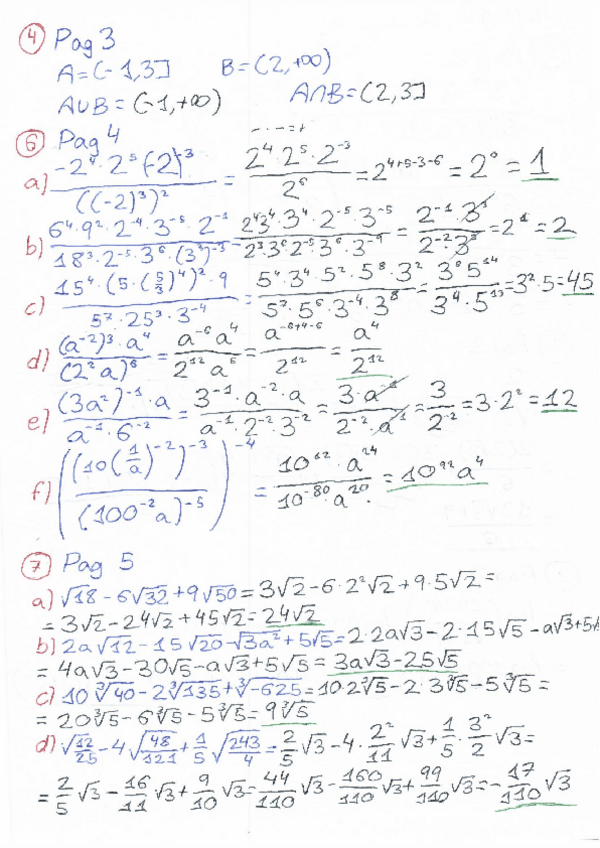 ④ Pag 3
A=(-1,3] B=(2,+∞)
A∪B=(-1,+∞) A∩B=(2,3]
⑥ Pag 4
a) -2⁴·2⁵(-2)⁻³ / ((-2)³)² = 2⁴·2⁵·2⁻³ / 2⁶ = 2⁴⁺⁵⁻³⁻⁶ = 2⁰ = 1
b) 6⁴·9²·2⁻⁴·3⁻⁵·2⁻¹ / 18³·2⁻⁵·3⁶·(3³)⁻³ = 2⁴3⁴·3⁴·2⁻⁵·3⁻⁵ / 2³3⁶2⁻⁵·3⁶·3⁻⁹ = 2⁻¹·3³ / 2⁻²·3³ = 2¹ = 2
c) 15⁴·(5·(5/3)⁴)²·9 / 5⁷·25³·3⁻⁴ = 5⁴·3⁴·5²·5⁸·3² / 5⁷·5⁶·3⁻⁴·3⁸ = 3⁶5¹⁴ / 3⁴·5¹³ = 3²·5 = 45
d) (a⁻²)³·a⁴ / (2²a)⁶ = a⁻⁶a⁴ / 2¹²a⁶ = a⁻⁶⁺⁴⁻⁶ / 2¹² = a⁴ / 2¹²
e) (3a²)⁻¹·a / a⁻¹·6⁻² = 3⁻¹·a⁻²·a / a⁻¹·2⁻²·3⁻² = 3·a⁻¹ / 2⁻²·a¹ = 3 / 2⁻² = 3·2² = 12
f) ((10(1/a)⁻²)⁻³ / (100⁻²a)⁻⁵)⁻⁴ = 10¹²·a²⁴ / 10⁻⁸⁰·a²⁰ = 10⁹²a⁴
⑦ Pag 5
a) √18-6√32+9√50=3√2-6·2²√2+9·5√2=
=3√2-24√2+45√2=24√2
b) 2a√12-15√20-√3a²+5√5=2·2a√3-2·15√5-a√3+5√5
=4a√3-30√5-a√3+5√5=3a√3-25√5
c) 10∛40-2∛135+∛-625=10·2∛5-2·3∛5-5∛5=
=20∛5-6∛5-5∛5=9∛5
d) √12/25-4√48/121+1/5√243/4=2/5√3-4·2²/11√3+1/5·3²/2√3=
=2/5√3-16/11√3+9/10√3=44/110√3-160/110√3+99/110√3=-17/110√3